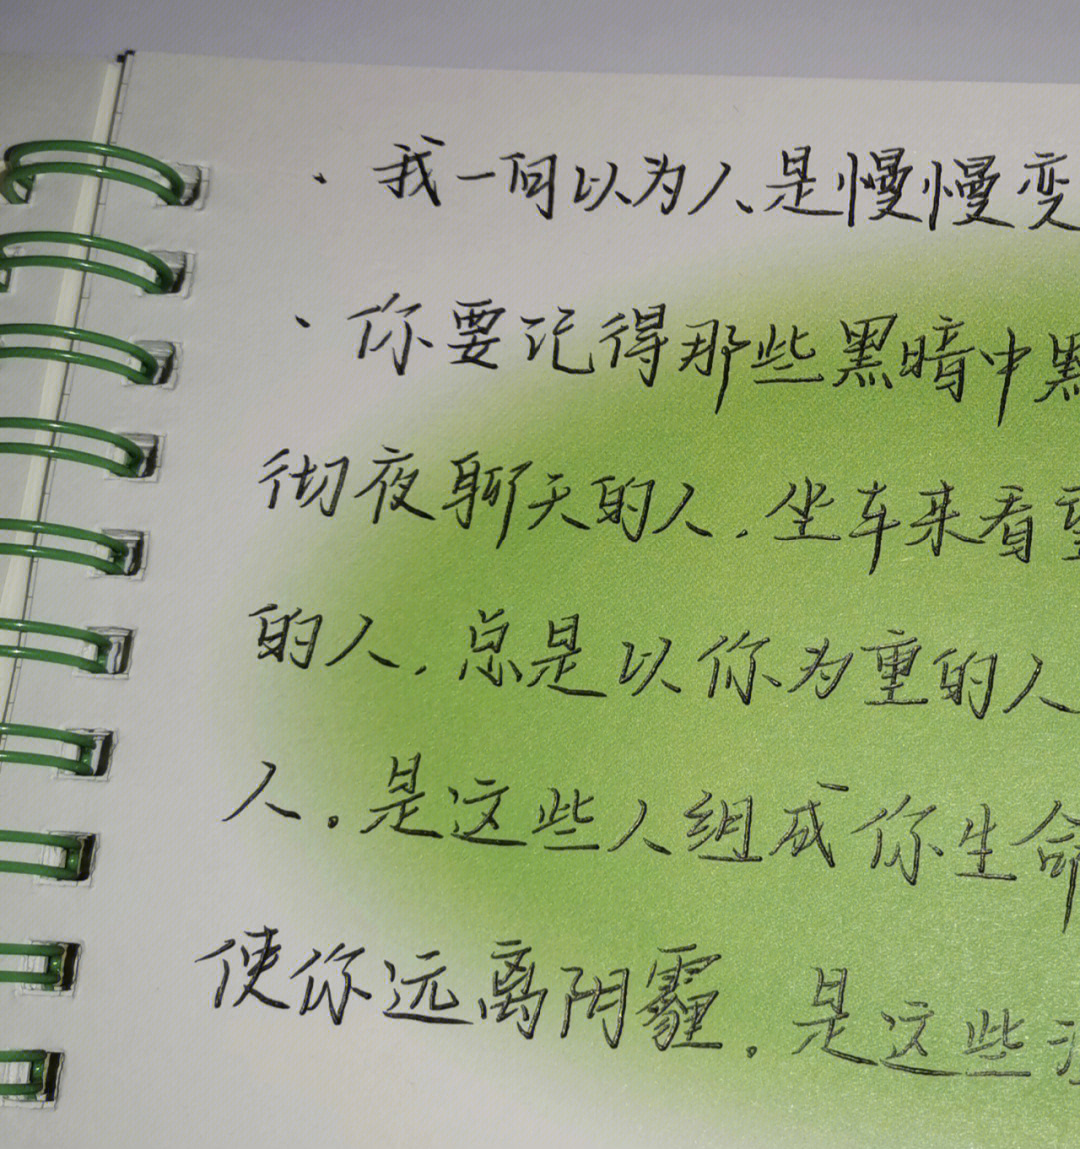 · 我一向以为人是慢慢变
· 你要记得那些黑暗中默
彻夜聊天的人.坐车来看望
的人.总是以你为重的人
人。是这些人组成你生命
使你远离阴霾.是这些